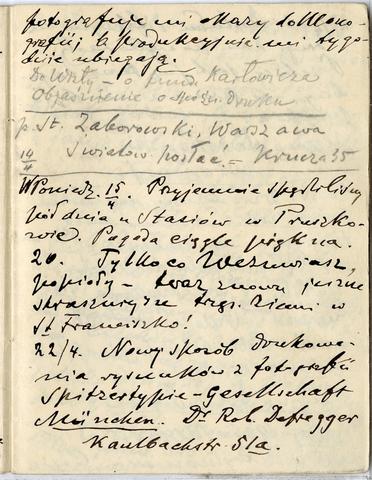 fotografuje mi Mary do Mono-
grafij & produkcyjnie mi tygo-
dnie ubiegają.
Do Wisły – o fund. Karłowicza
Objaśnienie o spóźn. druku
p. St. Zaborowski, Waszawa
14/4 Światow. postać = Krucza 35
W Poniedz. 15/4. Przyjemnie spędziliśmy
pół dnia u Stasiów w Pruszko-
wie. Pogoda ciągle piękna.
20. Tylko co Wezuwiusz,
popioły – teraz znowu jeszcze
straszniejsze trzęs. Ziemi w
St Francisko!
22/4. Nowy sposób drukowa-
nia rysunków z fotografii
Spitzertypie-Gesellschaft
München. Dr Rob. Defregger
Kaulbachstr. 51a.